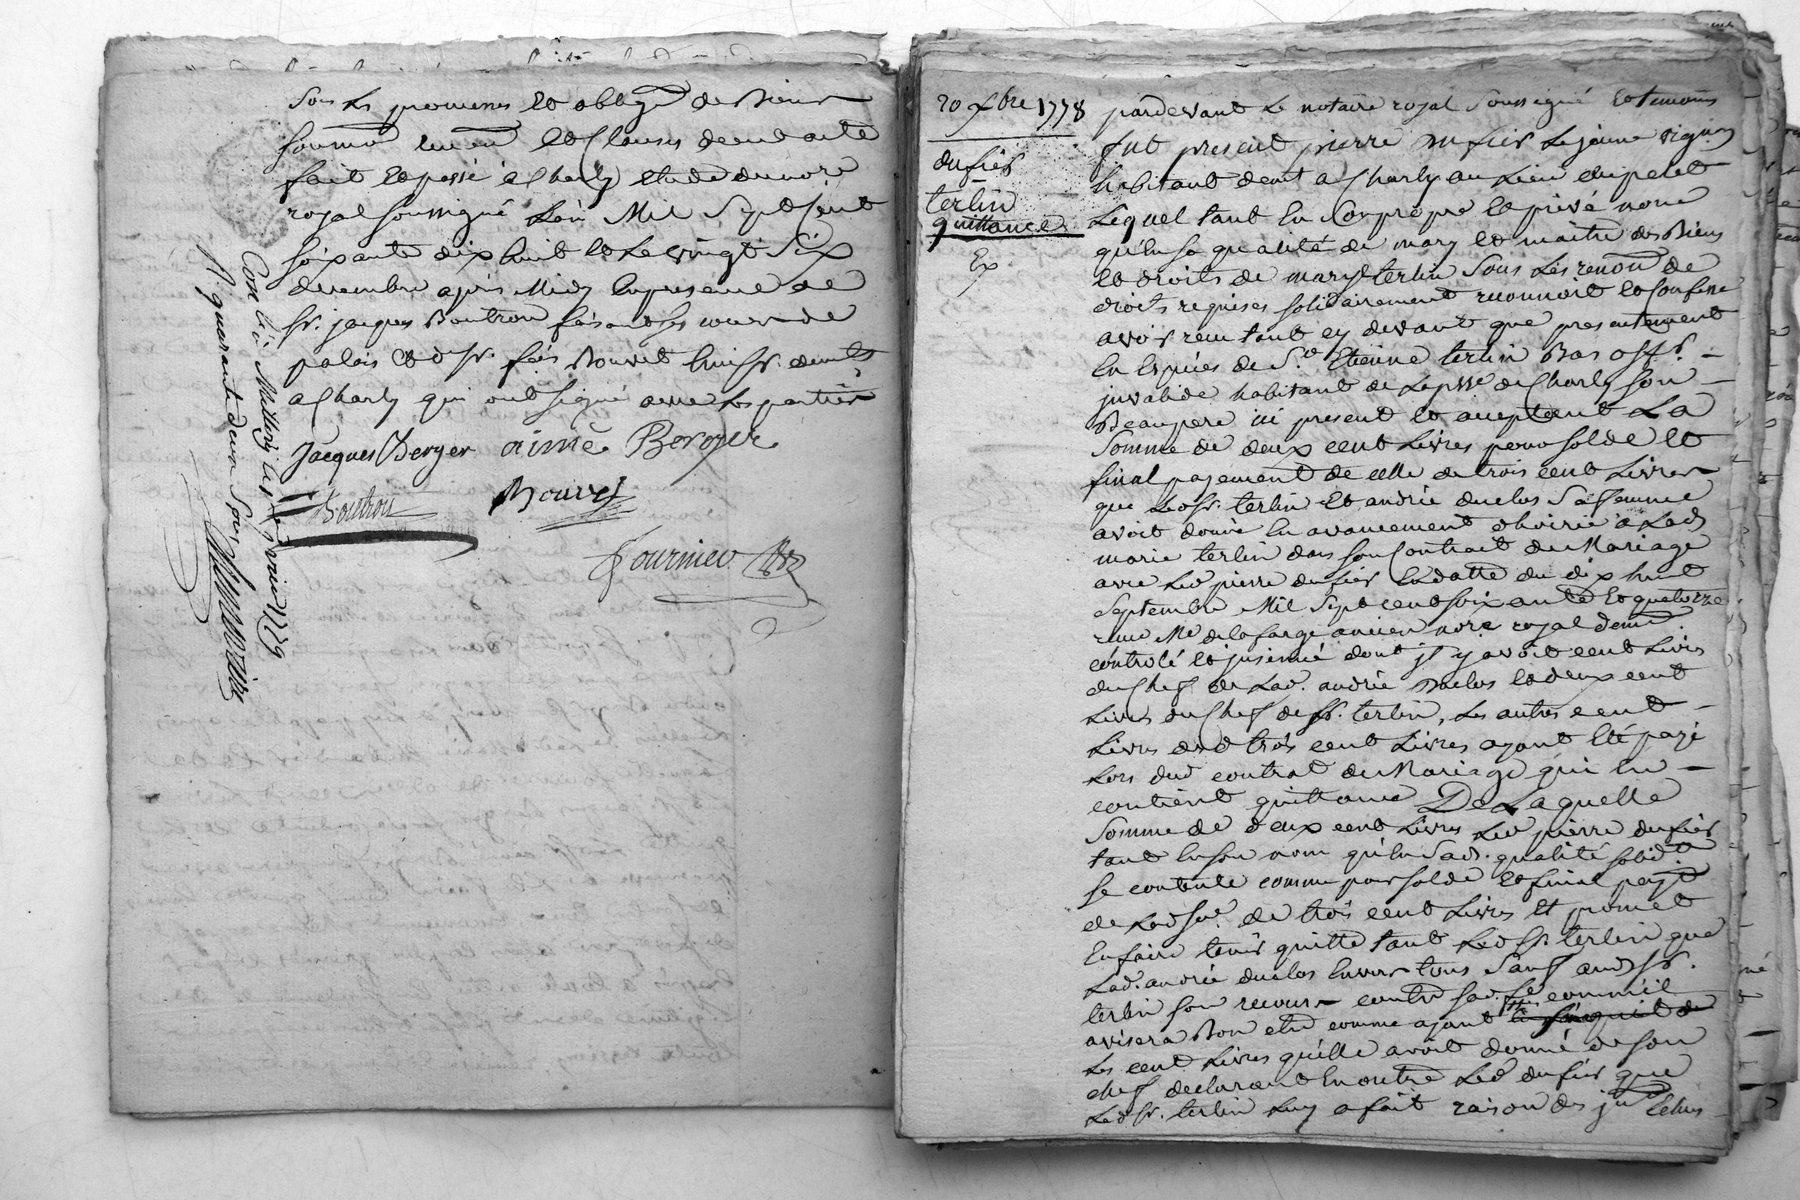 Sous les promesses et obligé de Biens
soumission renon et Clauses deend acte
fait et passé à Charly étude du nore
royal soussigné L'an Mil Sept Cent
soixante dix huit et Le vingt Six
decembre après Midy En presence de
Sr. jacques Boutron faisant les cours de
palais et de Sr. fçois Bouvet huissr. demts
a Charly qui ont Signé avec Les parties
Jacques Berger aimé Beroyer
Boutron Bouvet
Fournier
Con. lé à Millery le fevrier 1779
R quarante deux Sous
20 xbre 1778
dufier
terlin
quittance
Ex
pardevant Le notaire royal Soussigné et temoins
fut present pierre dufier Le jeune vigron
habitant demt a Charly au Lieu du petit
Lequel tant En Son propre et privé nom
qu'en sa qualité de mary et maitre des Biens
et droits de marie terlin Sous Les renon de
droits requises solidairement reconnoit et Confesse
avoir reçu tant cy devant que presentement
En Espèces de Sr. Etienne terlin Bas offr. -
jnvalide habitant de La psse de Charly Son -
Beaupere ici present et acceptant La
Somme de deux cent Livres pour solde et
final payement de celle de trois cent Livres
que Ledsr. terlin et andrée duclos Sa femme
avoit donné En avancement d'hoirie a Lad.
marie terlin dans son Contrat de Mariage
avec Led pierre dufier En datte du dix huit
Septembre Mil Sept cent soixante et quatorze
reçu Me delafarge ancien nore royal demt.
controlé et jnsinué dont jl y avoit cent Livres
du Chef de Lad. andrée duclos et deux cent
Livres du Chef dedSr. terlin, Les autres cent -
Livres desd trois cent Livres ayant été payé
Lors dud contrat de Mariage qui En -
contient quittance De Laquelle
Somme de deux cent Livres Led pierre dufier
tant En son nom qu'en Sad. qualité solidt.
se contente comme pour solde et final payt
de Lad Se. de trois cent Livres et promet
En faire tenir quitte tant Led Sr. terlin que
Lad. andrée duclos Envers tous Sauf aud Sr.
terlin son recours contre sad. fe comm'il
avisera Bon etre comme ayant
Les cent Livres qu'elle avoit donné de Son
chef declarant En outre Led dufier que
Ledsr. terlin Luy a fait raison des jnt Echus